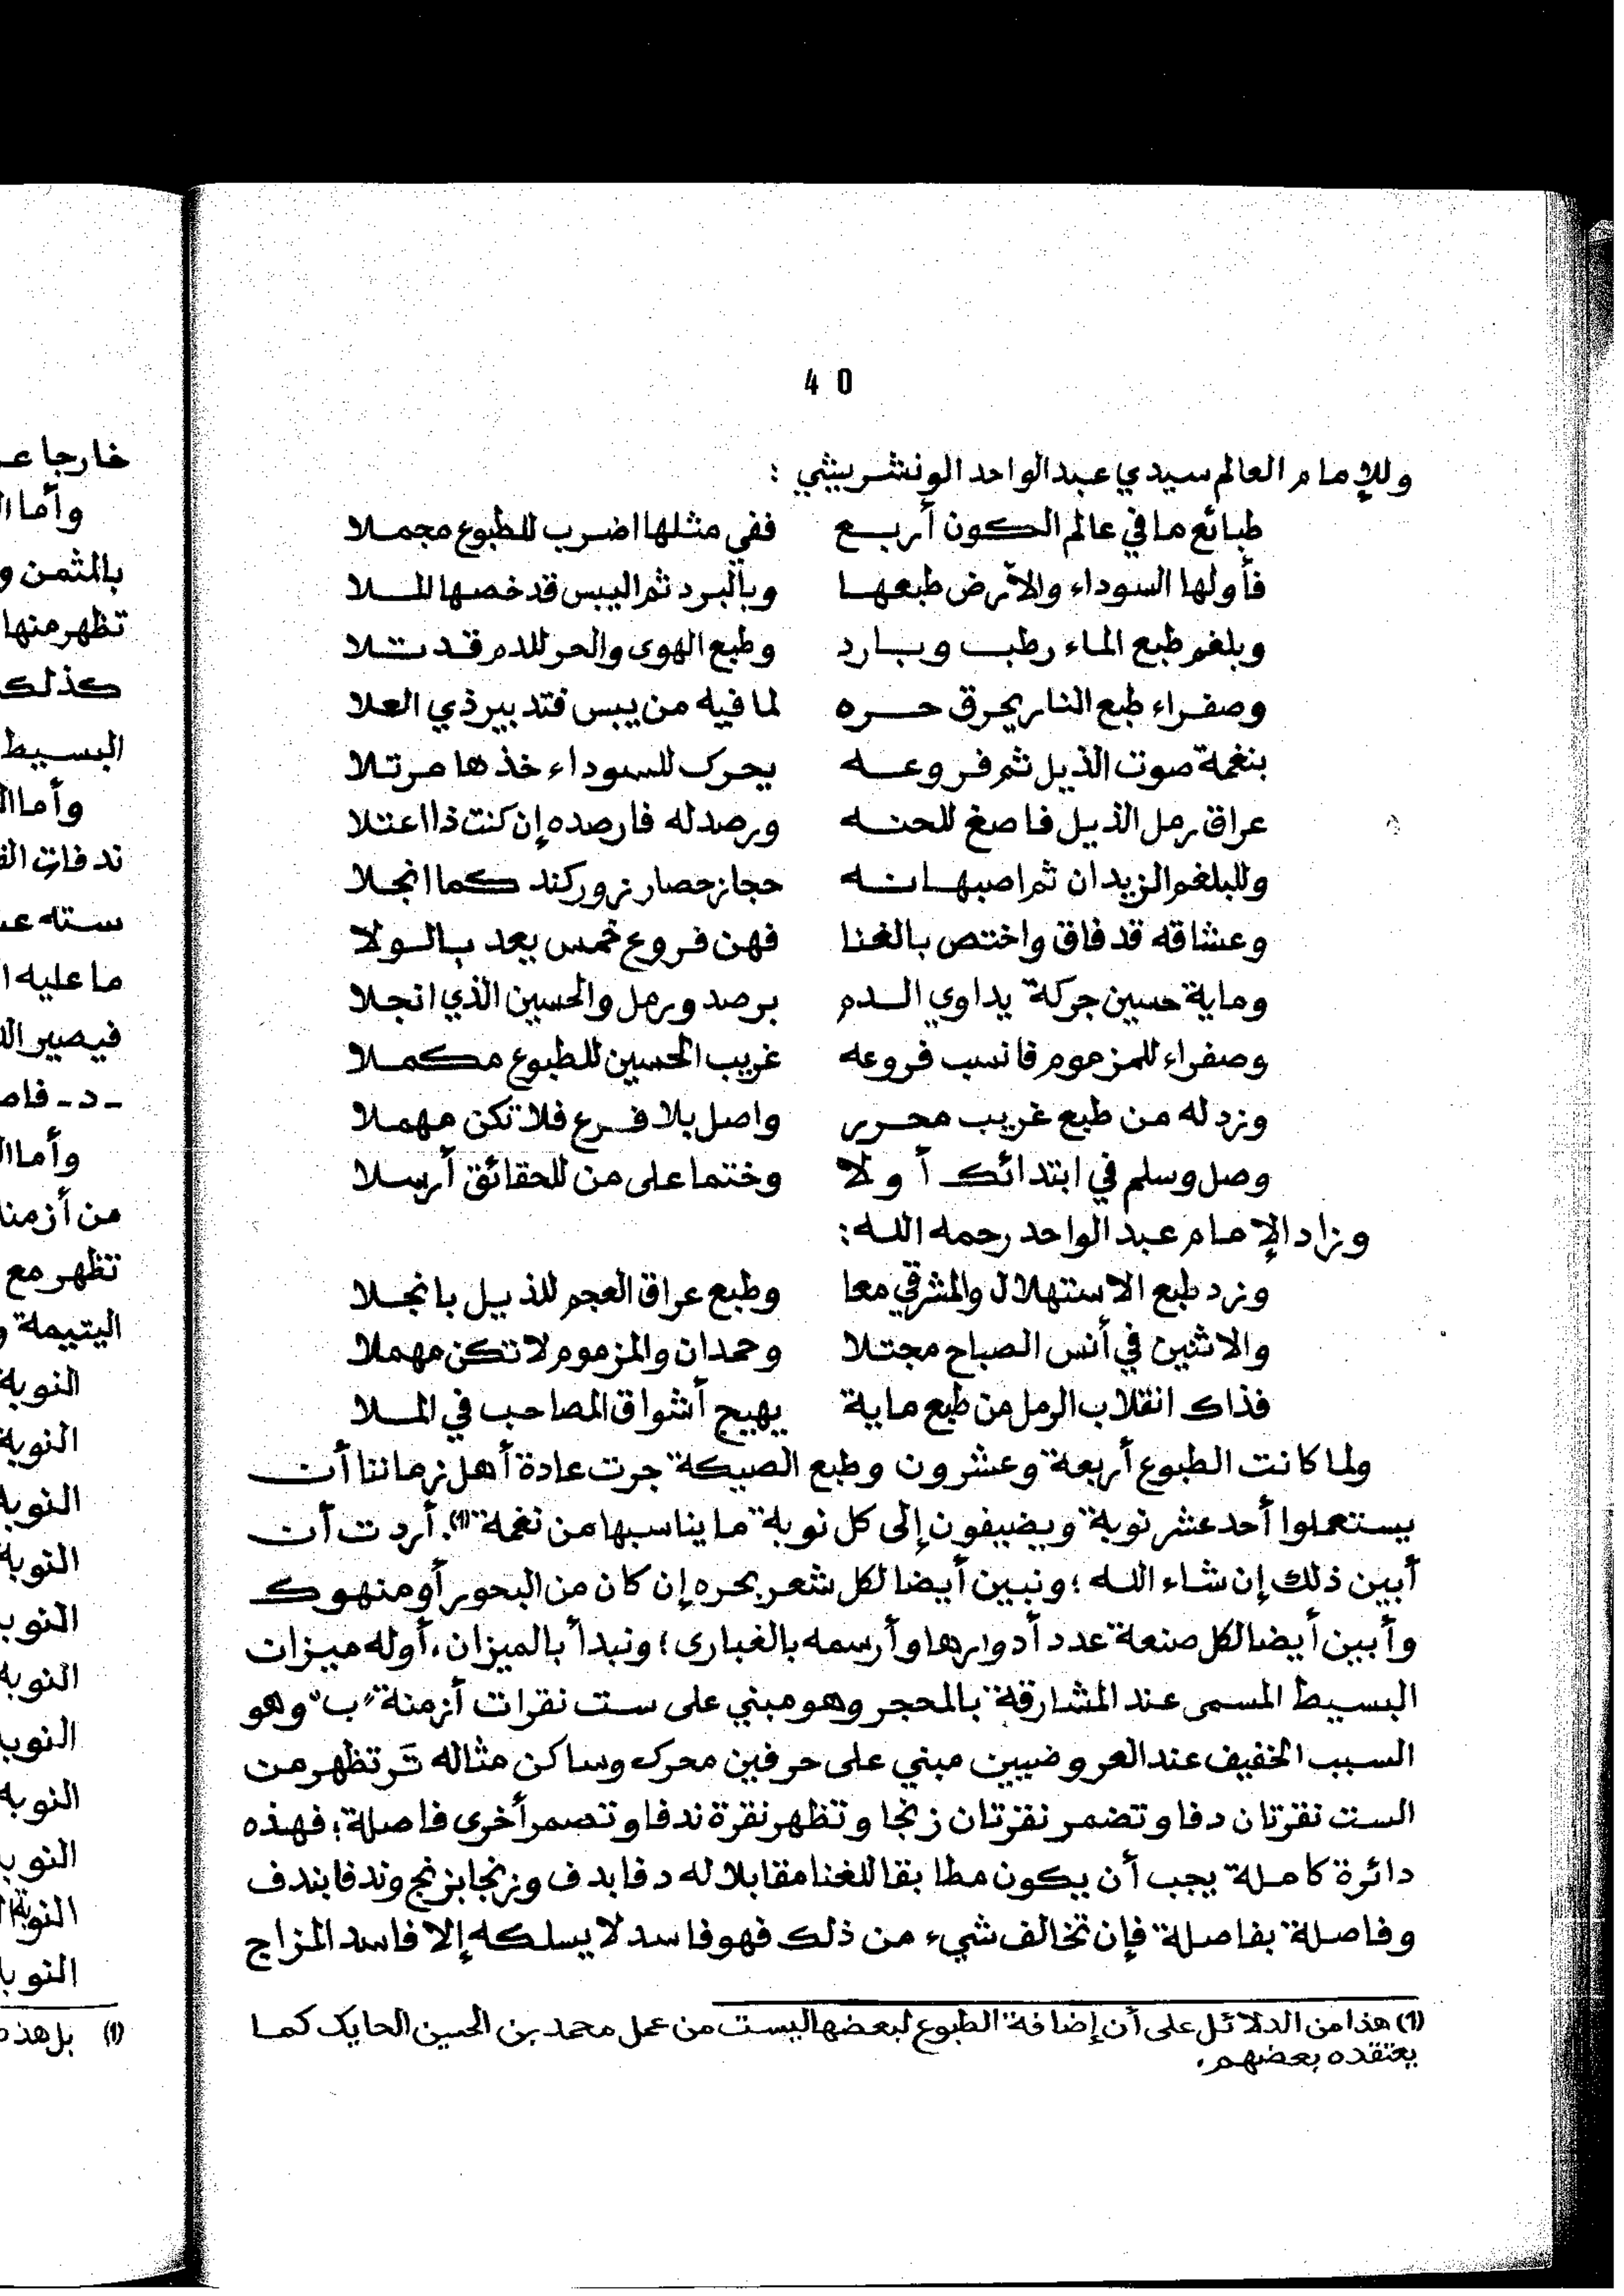 40
وللإمام العالم سيدي عبد الواحد الونشريشي :
طبائع ما في عالم الكون أربع ففي مثلها اضرب للطبوع مجملا
فأولها السوداء والأرض طبعها وبالبرد ثم اليبس قد خصها الملا
وبلغم طبع الماء رطب وبارد وطبع الهوى والحر للدم قد تلا
وصفراء طبع النار يحرق حره لما فيه من يبس فتدبير ذي العلا
بنغمة صوت الذيل ثم فروعه يحرك للسوداء خذها مرتلا
عراق رمل الذيل فاصغ للحنه ورصد له فارصده إن كنت ذا اعتلا
وللبلغم الزيدان ثم اصبهانه حجاز حصار زوركند كما انجلا
وعشاقه قد فاق واختص بالغنا فهن فروع خمس يعد بالولا
وماية حسين جركة يداوي الدم برصد ورمل والحسين الذي انجلا
وصفراء للمزموم فانسب فروعه غريب الحسين للطبوع مكملا
وزد له من طبع غريب محرر واصل بلا فرع فلا تكن مهملا
وصل وسلم في ابتدائك أولا وختما على من للحقائق أرسلا
وزاد الإمام عبد الواحد رحمه الله:
وزد طبع الاستهلال والمشرقي معا وطبع عراق العجم للذيل بانجلا
والاثنين في أنس الصباح مجتلا وحمدان والمزموم لا تكن مهملا
فذاك انقلاب الرمل من طبع ماية يهيج أشواق المصاحب في الملا
ولما كانت الطبوع أربعة وعشرون وطبع الصيكة جرت عادة أهل زماننا أن
يستعملوا أحد عشر نوبة ويضيفون إلى كل نوبة ما يناسبها من نغمة (1). أردت أن
أبين ذلك إن شاء الله ؛ ونبين أيضا لكل شعر بحره إن كان من البحور أو منهوك
وأبين أيضا لكل صنعة عدد أدوارها وأرسمه بالغبارى ؛ ونبدأ بالميزان، أوله ميزان
البسيط المسمى عند المشارقة بالمحجر وهو مبني على ست نقرات أزمنة "ب" وهو
السبب الخفيف عند العروضيين مبني على حرفين محرك وساكن مثاله تر تظهر من
الست نقرتان دفا وتضمر نقرتان زنجا وتظهر نقرة ندفا وتصمر أخرى فاصلة ؛ فهذه
دائرة كاملة يجب أن يكون مطابقا للغنا مقابلا له دفا بدف وزنجا بزنج وندفا بندف
وفاصلة بفاصلة فإن تخالف شيء من ذلك فهو فاسد لا يسلكه إلا فاسد المزاج
(1) هذا من الدلائل على أن إضافة الطبوع لبعضها ليست من عمل محمد بن الحسين الحايك كما
يعتقده بعضهم.
خارجا
بالثمن و
تظهر منها
كذلك
البسيط
ما عليه
تظهر مع
اليتيمة
(1) بل هذه